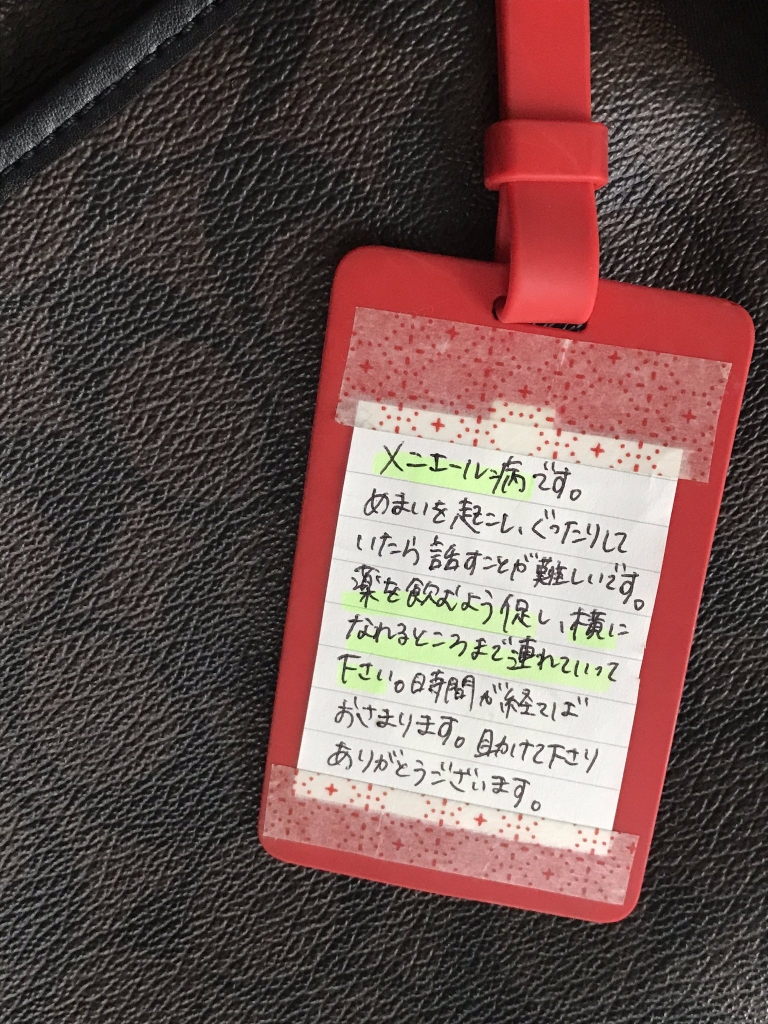 メニエール病です。
めまいを起こし、ぐったりして
いたら話すことが難しいです。
薬を飲むよう促し、横に
なれるところまで連れていって
下さい。時間が経てば
おさまります。助けて下さり
ありがとうございます。